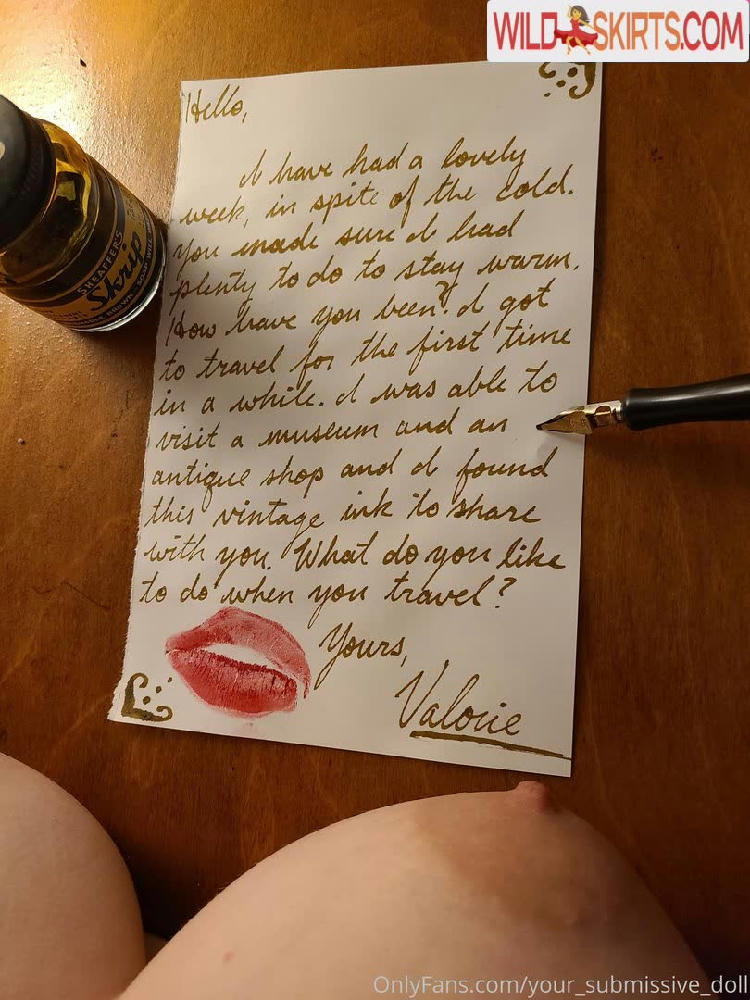 WILDSKIRTS.COM
Hello,
I have had a lovely
week, in spite of the cold.
You made sure I had
plenty to do to stay warm.
How have you been? I got
to travel for the first time
in a while. I was able to
visit a museum and an
antique shop and I found
this vintage ink to share
with you. What do you like
to do when you travel?
Yours,
Valorie
SHEAFFER'S
Skrip
OnlyFans.com/your_submissive_doll